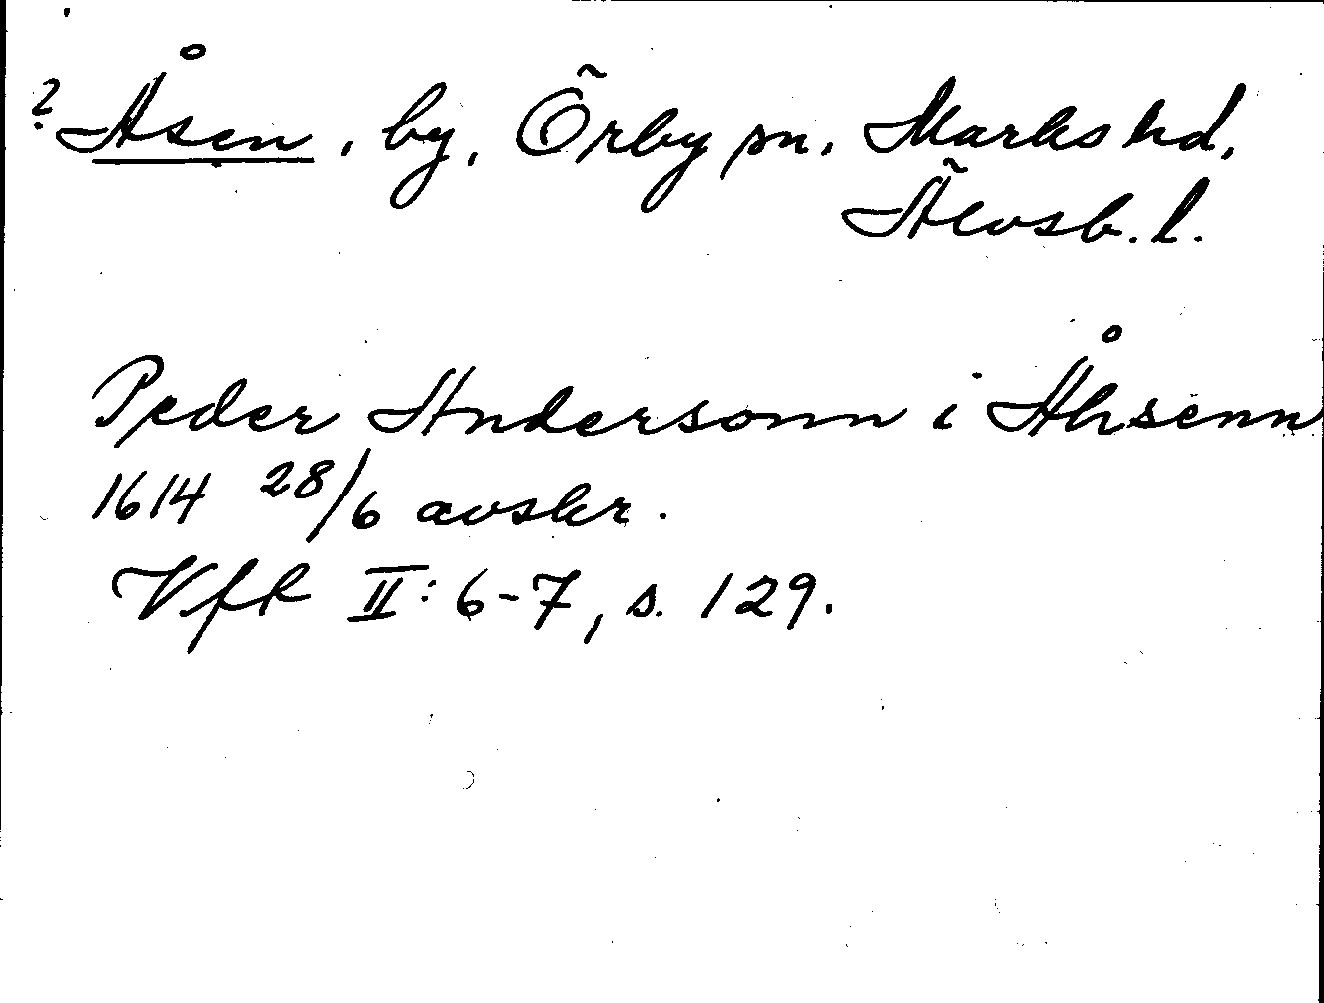 ? Åsen, by, Örby sn, Marks hd,
Älvsb. l.
Peder Andersonn i Åhsenn
1614 28/6 avskr.
VfR II: 6-7, s. 129.